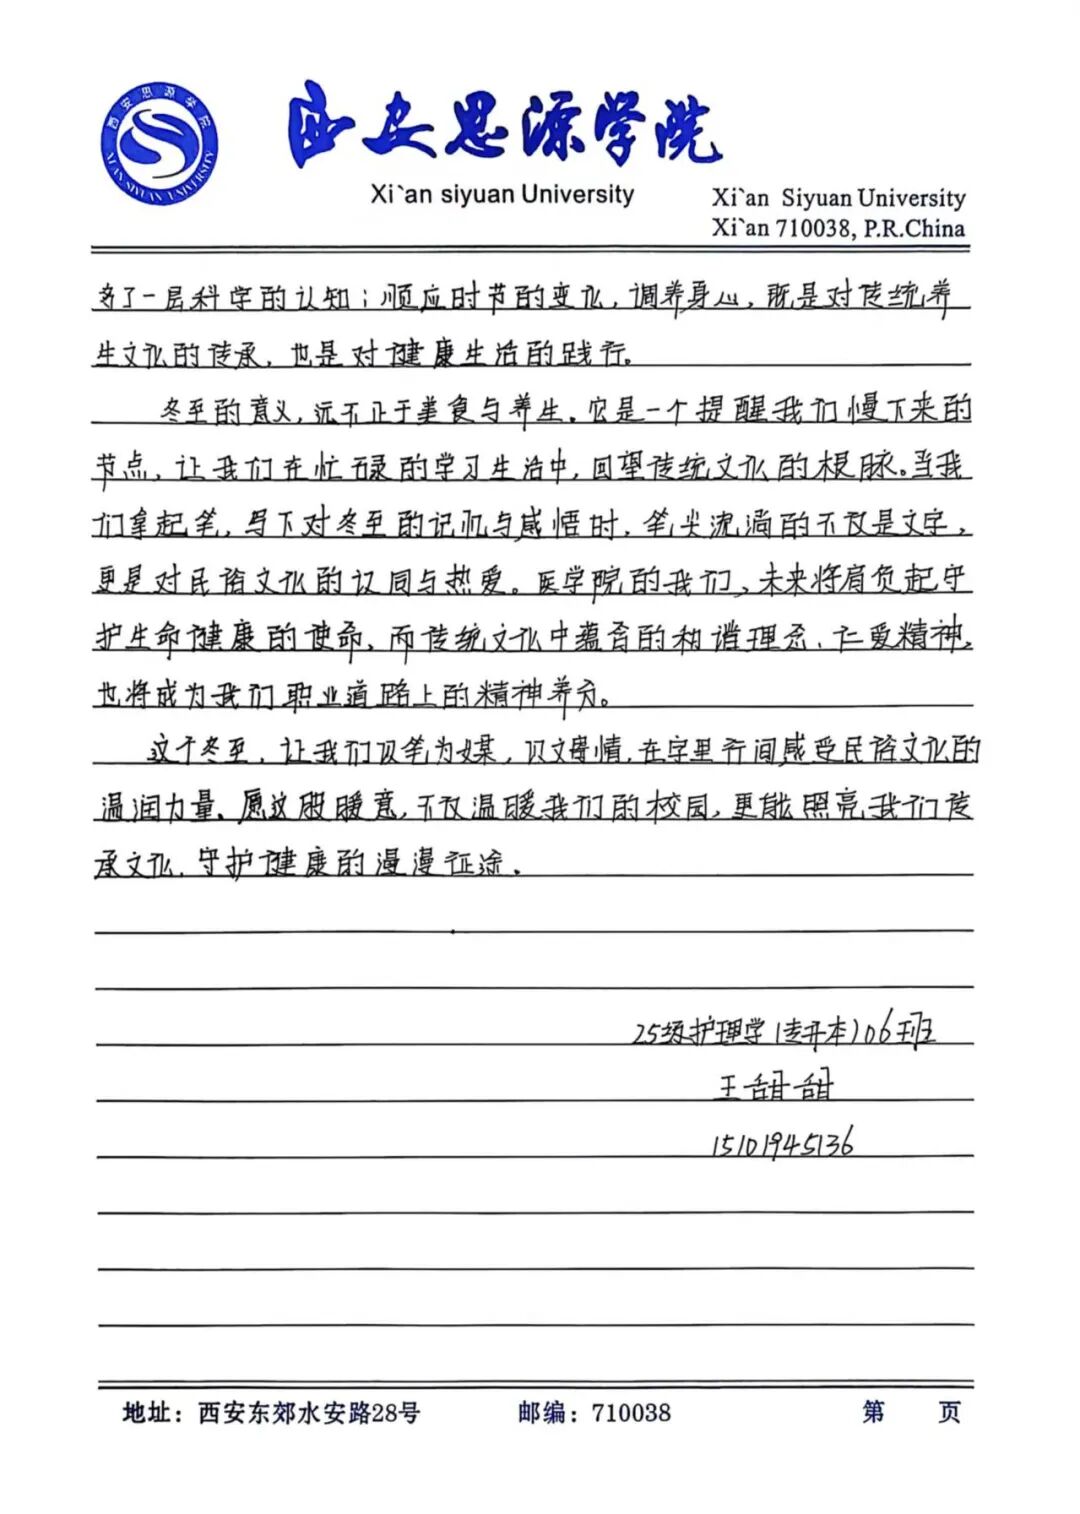 西安思源学院
XI'AN SIYUAN UNIVERSITY
西安思源学院
Xi`an siyuan University
Xi`an Siyuan University
Xi`an 710038, P.R.China
多了一层科学的认知；顺应时节的变化，调养身心，既是对传统养
生文化的传承，也是对健康生活的践行。
冬至的意义，远不止于美食与养生。它是一个提醒我们慢下来的
节点，让我们在忙碌的学习生活中，回望传统文化的根脉。当我
们拿起笔，写下对冬至的记忆与感悟时，笔尖流淌的不仅是文字，
更是对民俗文化的认同与热爱。医学院的我们，未来将肩负起守
护生命健康的使命，而传统文化中蕴含的和谐理念、仁爱精神，
也将成为我们职业道路上的精神养分。
这个冬至，让我们以笔为媒，以文传情，在字里行间感受民俗文化的
温润力量。愿这股暖意，不仅温暖我们的校园，更能照亮我们传
承文化、守护健康的漫漫征途。
25级护理学(专升本)06班
王甜甜
15101945136
地址：西安东郊水安路28号 邮编：710038 第 页